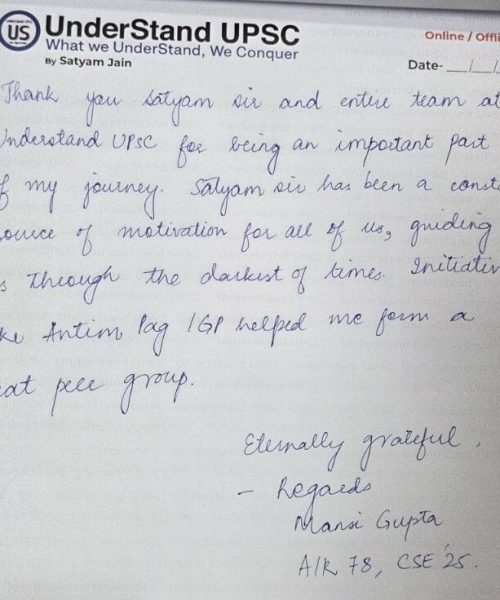 US
UnderStand UPSC
What we UnderStand, We Conquer
By Satyam Jain
Online / Offli
Date- __/__/
Thank you Satyam sir and entire team at
Understand UPSC for being an important part
of my journey. Satyam sir has been a consta
ource of motivation for all of us, guiding
s through the darkest of times. Initiativ
ke Antim Pag IGP helped me form a
eat peer group.
Eternally grateful.
- Regards
Mansi Gupta
AIR 78, CSE '25.